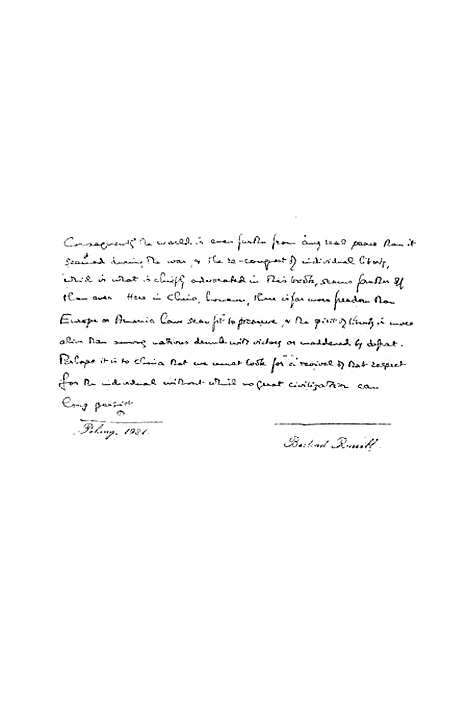 Consequently the world is even further from any real peace than it
seemed during the war, & the re-conquest of individual liberty,
which is what is chiefly advocated in this book, seems further off
than ever. Here in China, however, there is far more freedom than
Europe or America have seen fit to preserve, & the spirit of liberty is more
alive than among nations drunk with victory or maddened by defeat.
Perhaps it is to China that we must look for a revival of that respect
for the individual without which no great civilization can
long persist
Peking, 1921.
Bertrand Russell.